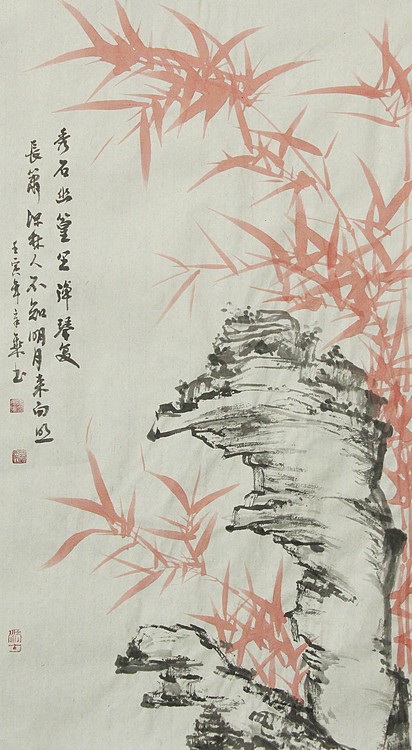 秀石幽篁里弹琴复
長簫深林人不知明月来向照
壬寅年